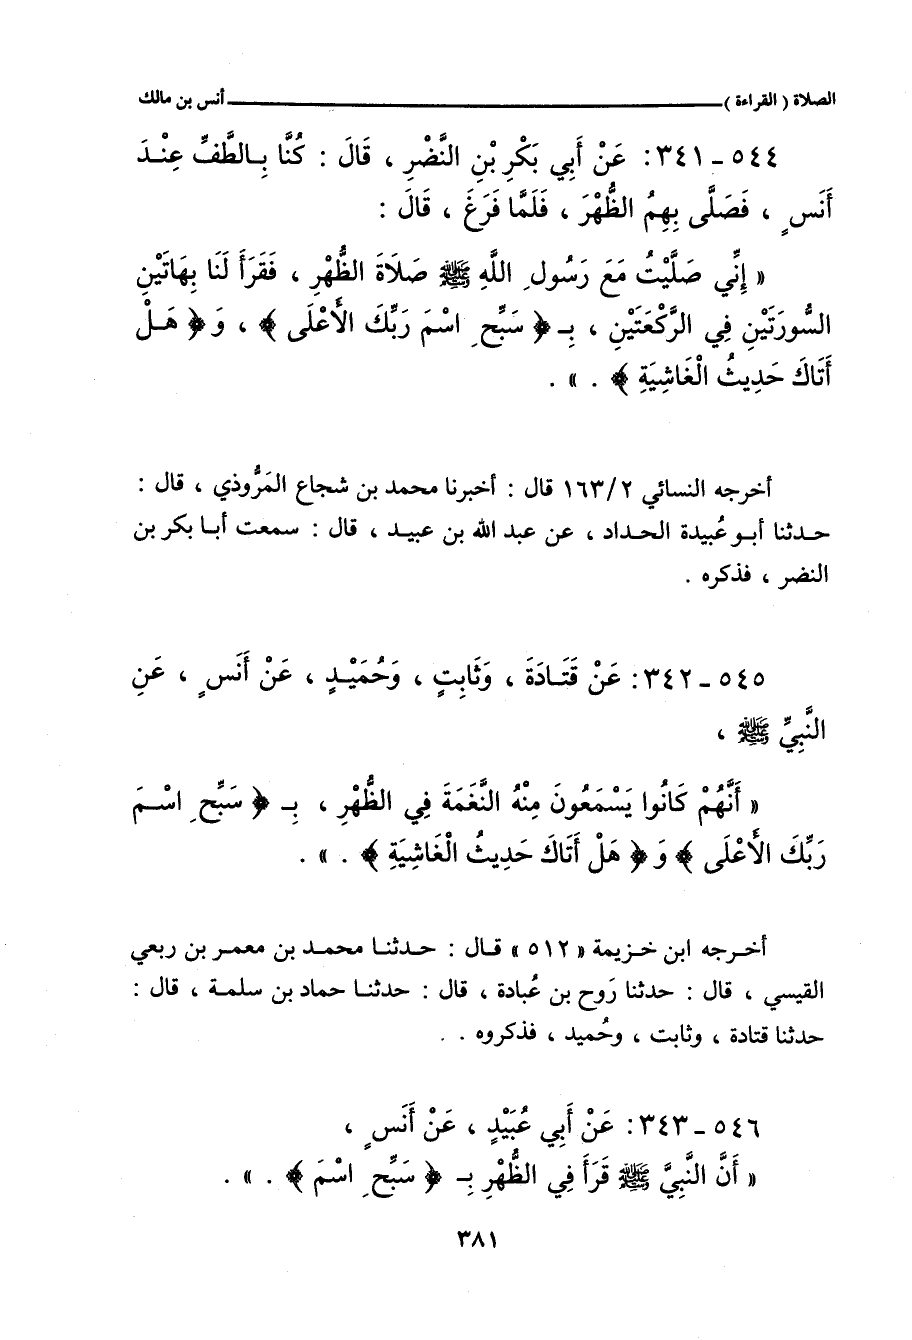 الصلاة ( القراءة ) أنس بن مالك
٥٤٤ - ٣٤١: عَنْ أَبِي بَكْرِ بْنِ النَّضْرِ ، قَالَ : كُنَّا بِالطَّفِّ عِنْدَ
أَنَسٍ ، فَصَلَّى بِهِمُ الظُّهْرَ ، فَلَمَّا فَرَغَ ، قَالَ :
« إِنِّي صَلَّيْتُ مَعَ رَسُولِ اللَّهِ ﷺ صَلَاةَ الظُّهْرِ ، فَقَرَأَ لَنَا بِهَاتَيْنِ
السُّورَتَيْنِ فِي الرَّكْعَتَيْنِ ، بِـ ﴿ سَبِّحِ اسْمَ رَبِّكَ الأَعْلَى ﴾ ، وَ ﴿ هَلْ
أَتَاكَ حَدِيثُ الْغَاشِيَةِ ﴾ . » .
أخرجه النسائي ١٦٣/٢ قال : أخبرنا محمد بن شجاع المَرُّوذي ، قال :
حدثنا أبو عُبيدة الحداد ، عن عبد الله بن عبيد ، قال : سمعت أبا بكر بن
النضر ، فذكره .
٥٤٥ - ٣٤٢: عَنْ قَتَادَةَ ، وَثَابِتٍ ، وَحُمَيْدٍ ، عَنْ أَنَسٍ ، عَنِ
النَّبِيِّ ﷺ ،
« أَنَّهُمْ كَانُوا يَسْمَعُونَ مِنْهُ النَّغَمَةَ فِي الظُّهْرِ ، بِـ ﴿ سَبِّحِ اسْمَ
رَبِّكَ الأَعْلَى ﴾ وَ ﴿ هَلْ أَتَاكَ حَدِيثُ الْغَاشِيَةِ ﴾ . » .
أخرجه ابن خزيمة « ٥١٢ » قال : حدثنا محمد بن معمر بن ربعي
القيسي ، قال : حدثنا رَوح بن عُبادة ، قال : حدثنا حماد بن سلمة ، قال :
حدثنا قتادة ، وثابت ، وحُميد ، فذكروه . .
٥٤٦ - ٣٤٣: عَنْ أَبِي عُبَيْدٍ ، عَنْ أَنَسٍ ،
« أَنَّ النَّبِيَّ ﷺ قَرَأَ فِي الظُّهْرِ بِـ ﴿ سَبِّحِ اسْمَ ﴾ . » .
٣٨١